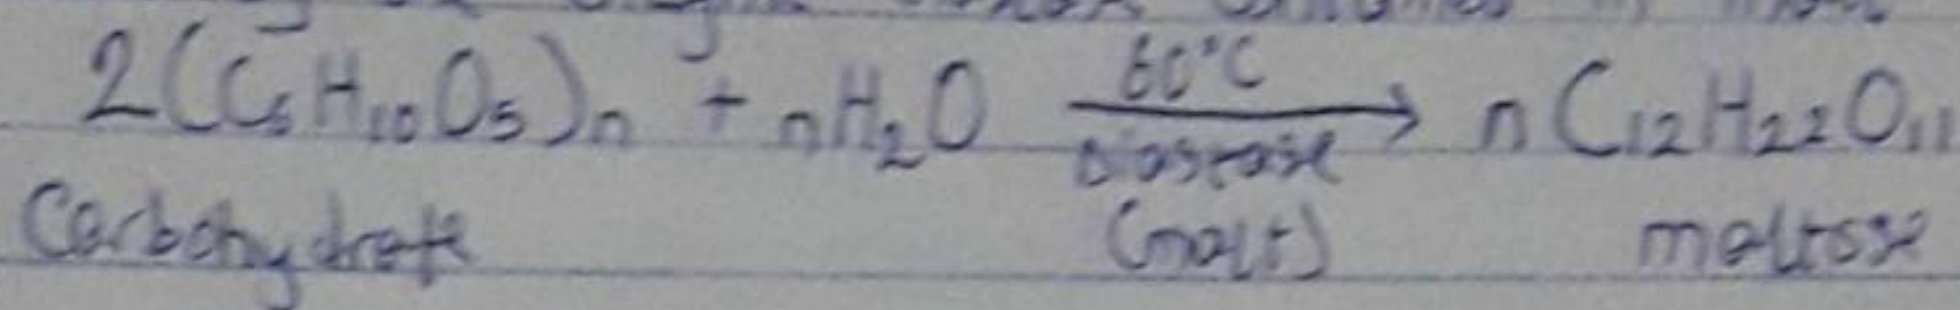 2(C₆H₁₀O₅)ₙ + nH₂O 60°C → Diastase (malt) nC₁₂H₂₂O₁₁
Carbohydrate maltose